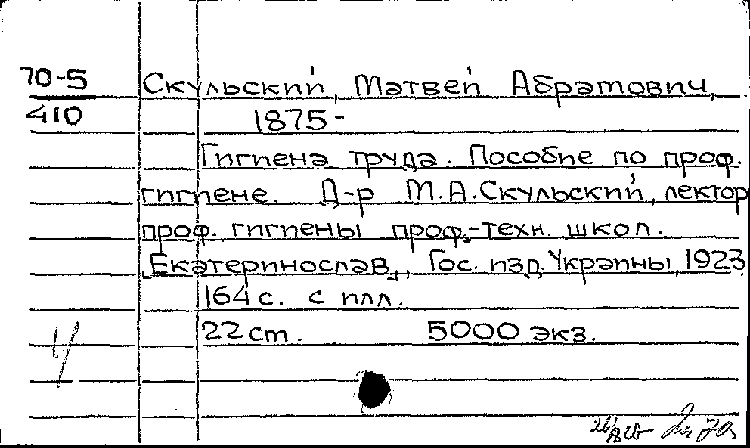 70-5
410
Скульский, Матвей Абрамович,
1875-
Гигиена труда. Пособие по проф.
гигиене. Д-р М.А.Скульский, лектор
проф. гигиены проф.-техн. школ.
Екатеринослав, Гос. изд. Украины, 1923
164 с. с илл.
22 cm. 5000 экз.